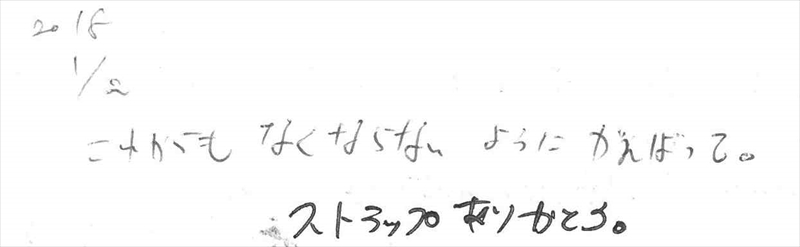 2018
1/2
これからも なくならない ように がんばって。
ストラップ ありがとう。